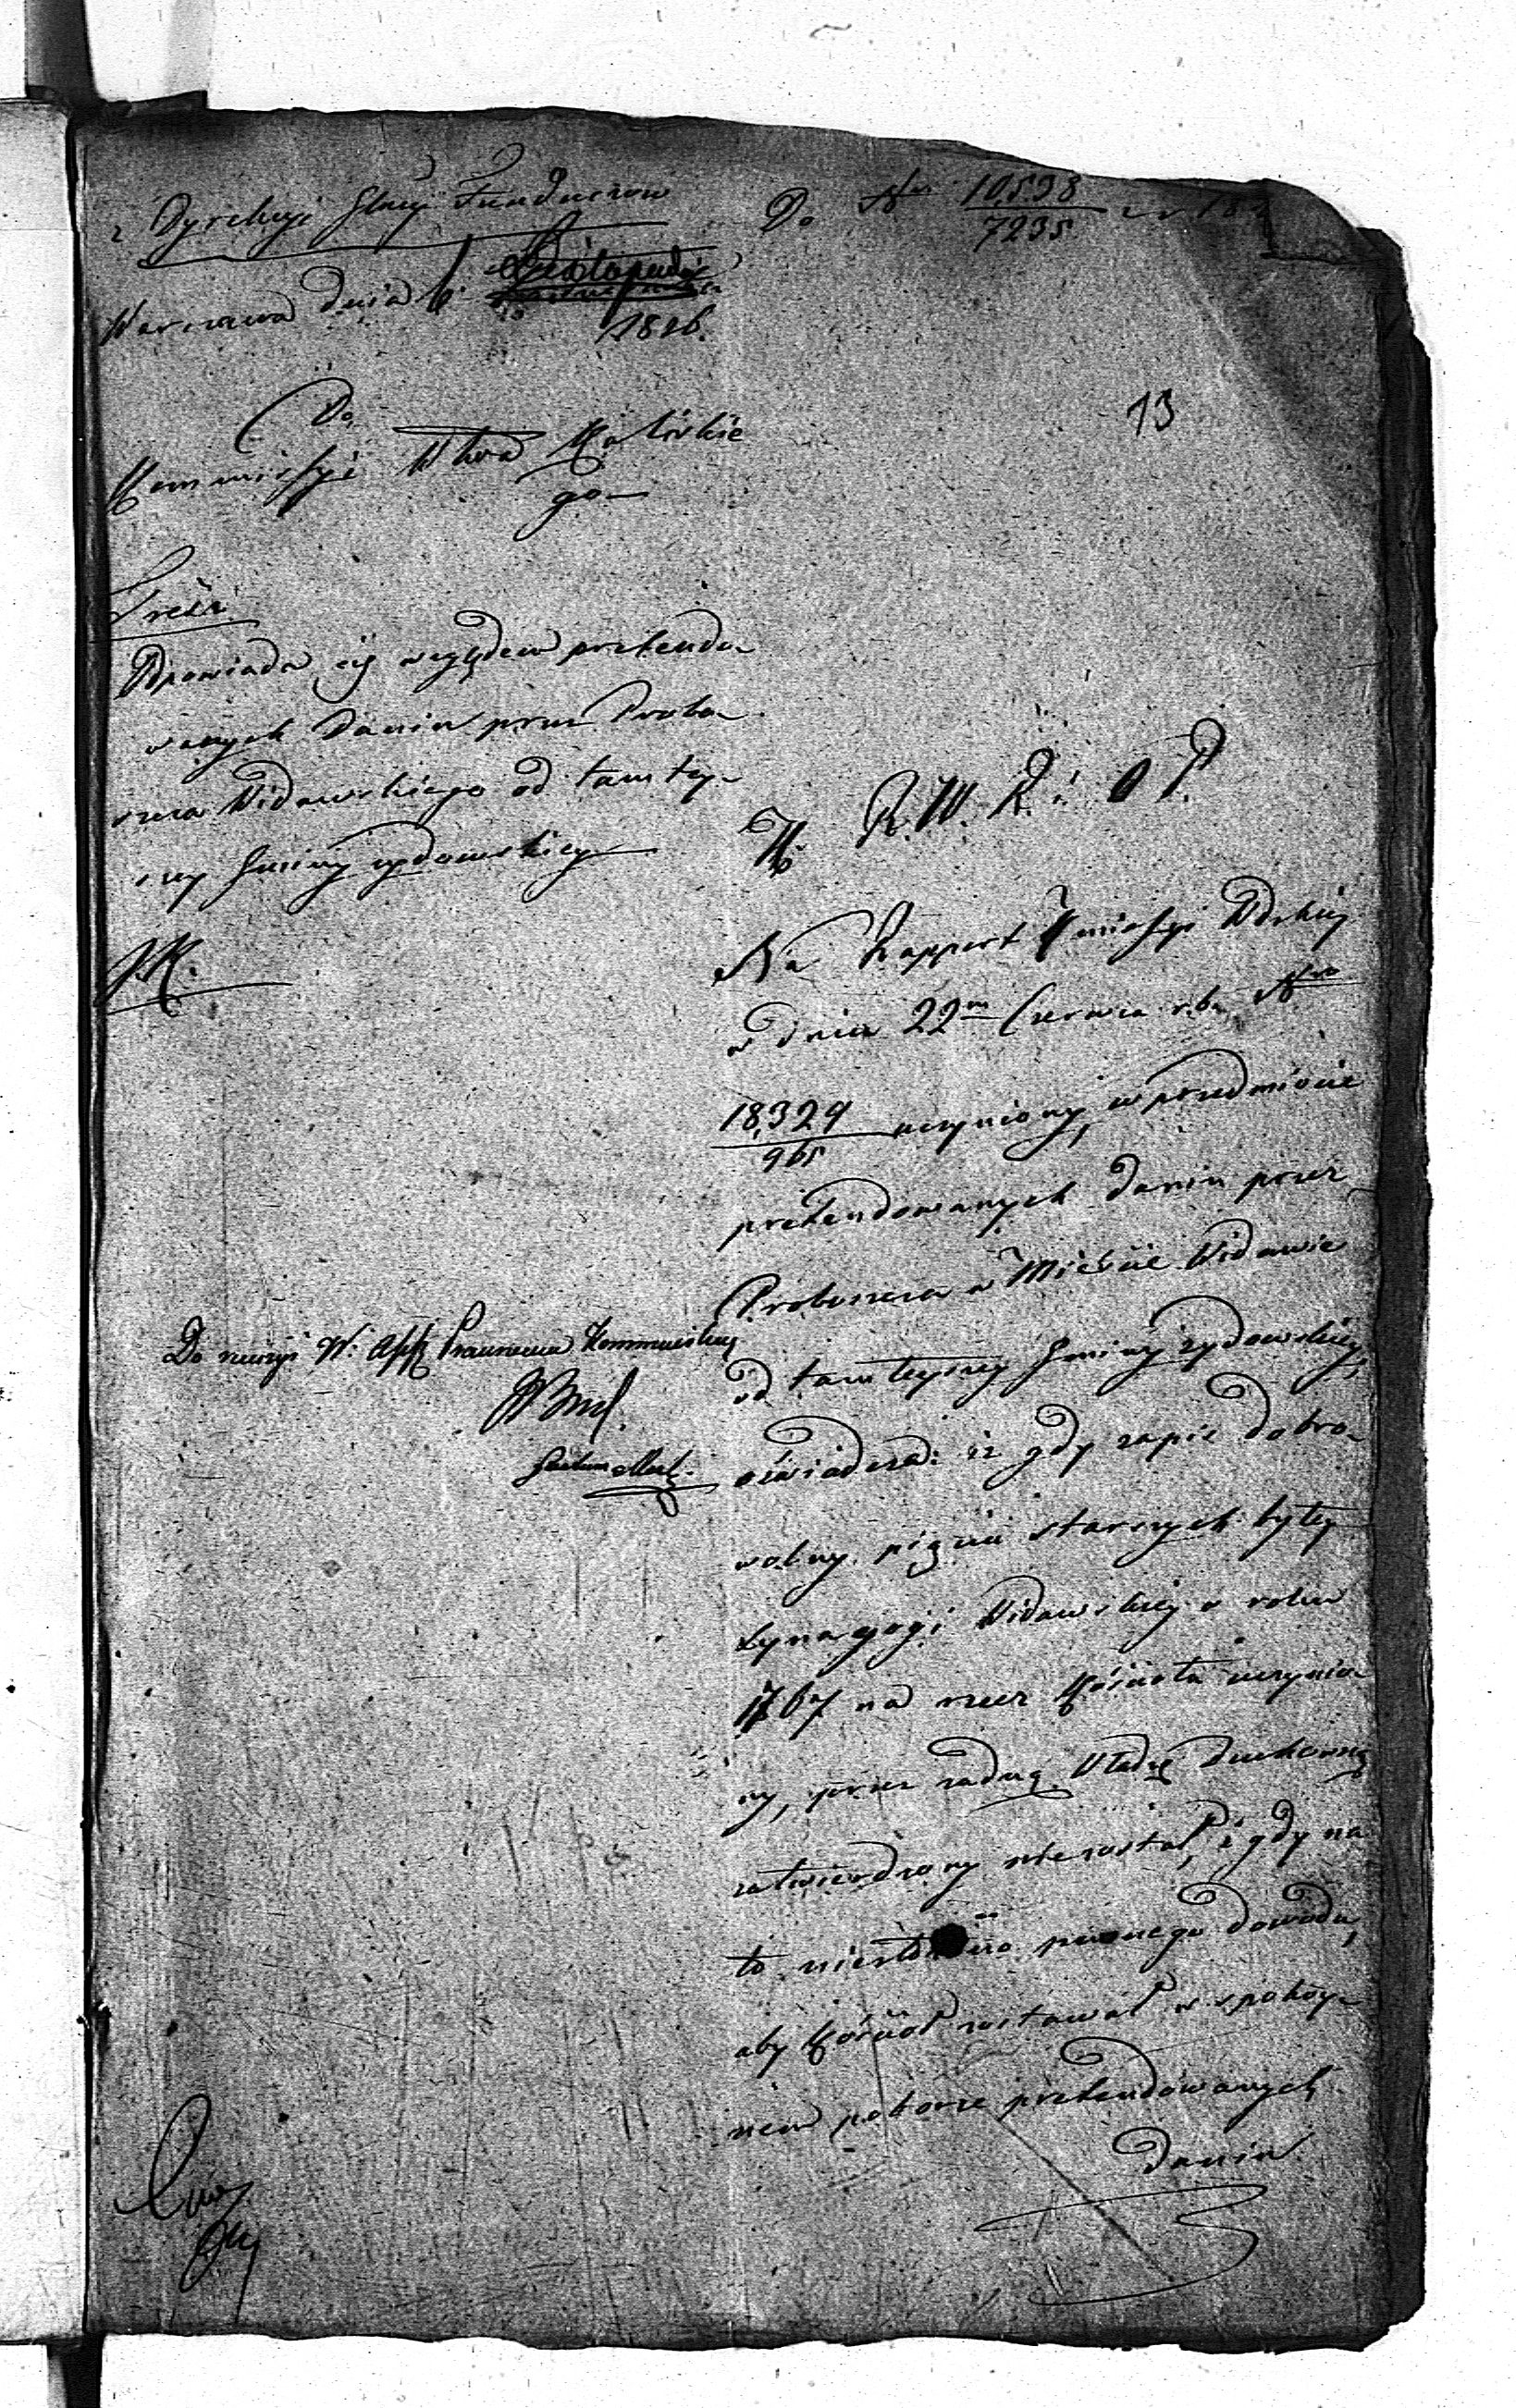 z Dyrekcyi Głney Funduszow
Warszawa dnia 6. Listopada
1826.
Do
Kommissyi Wtwa Kaliskie
go
Treść.
Odpowiada się względem pretendo-
wanych danin przez Probo-
szcza Widawskiego od tamtey-
szey Gminy żydowskiey
Do rewizyi W:
Do Nro 10,598
7235
13
K. R. W. R. i O P.
Na Rapport Kmissyi Wdzkiey
w dniu 22m Czerwca r. b. Nro
18,329
965
uczyniony, w przedmiocie
pretendowanych danin przez
Proboszcza w Mieście Widawie
od tamteyszey Gminy żydowskiey,
oświadcza: iż gdy zapis dobro-
wolny pięciu starszych byłey
Synagogi Widawskiey w roku
1767 na rzecz Kościoła uczynio-
ny, przez żadną Władzę Duchowną
zatwierdzony nie został, i gdy na
to niesłożono pewnego dowodu,
aby Kościoł zostawał w spokoy-
nem poborze pretendowanych
danin